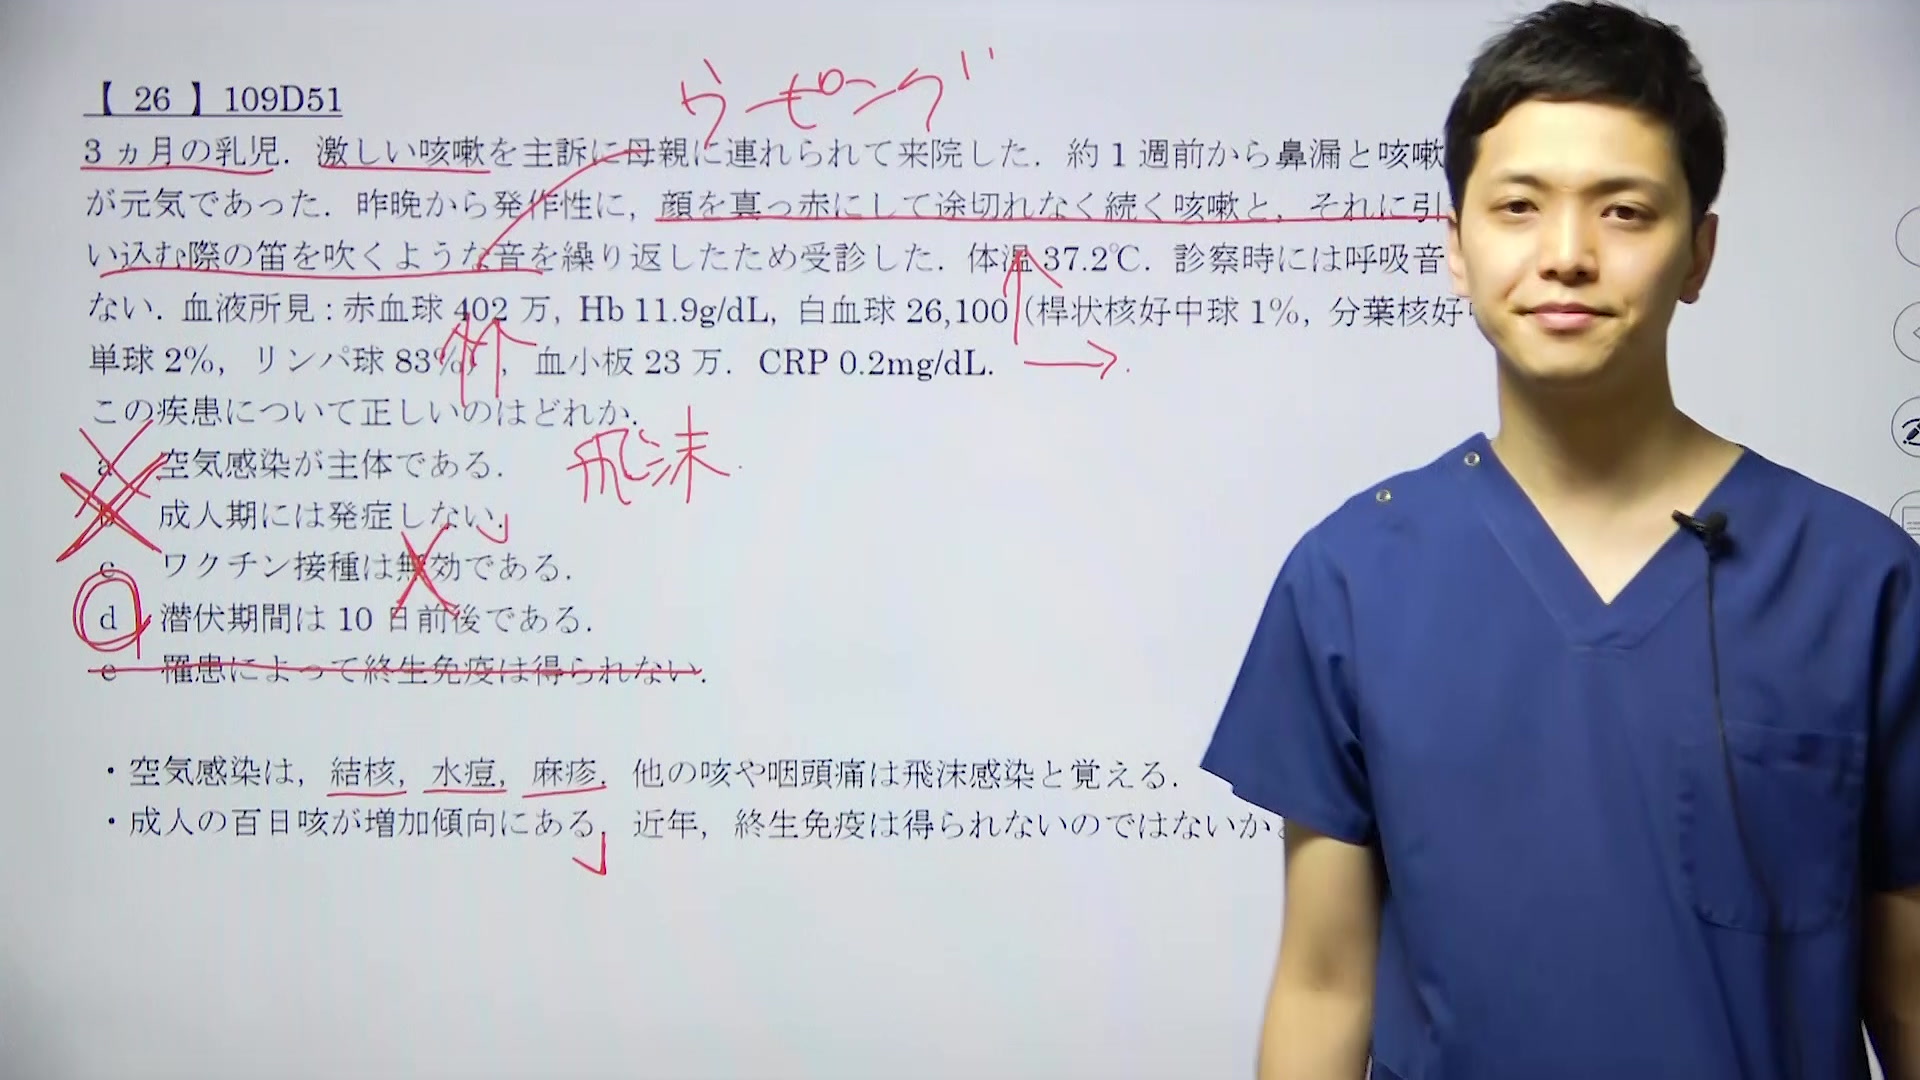 【 26 】109D51
ウーピング
3ヵ月の乳児．激しい咳嗽を主訴に母親に連れられて来院した．約1週前から鼻漏と咳嗽
が元気であった．昨晩から発作性に，顔を真っ赤にして途切れなく続く咳嗽と，それに引
い込む際の笛を吹くような音を繰り返したため受診した．体温 37.2℃．診察時には呼吸音
ない．血液所見：赤血球 402 万，Hb 11.9g/dL，白血球 26,100（桿状核好中球 1%，分葉核好
単球 2%，リンパ球 83%），血小板 23 万．CRP 0.2mg/dL.
この疾患について正しいのはどれか．
a 空気感染が主体である．
飛沫
b 成人期には発症しない．
c ワクチン接種は無効である．
d 潜伏期間は 10 日前後である．
e 罹患によって終生免疫は得られない．
・空気感染は，結核，水痘，麻疹．他の咳や咽頭痛は飛沫感染と覚える．
・成人の百日咳が増加傾向にある．近年，終生免疫は得られないのではないか